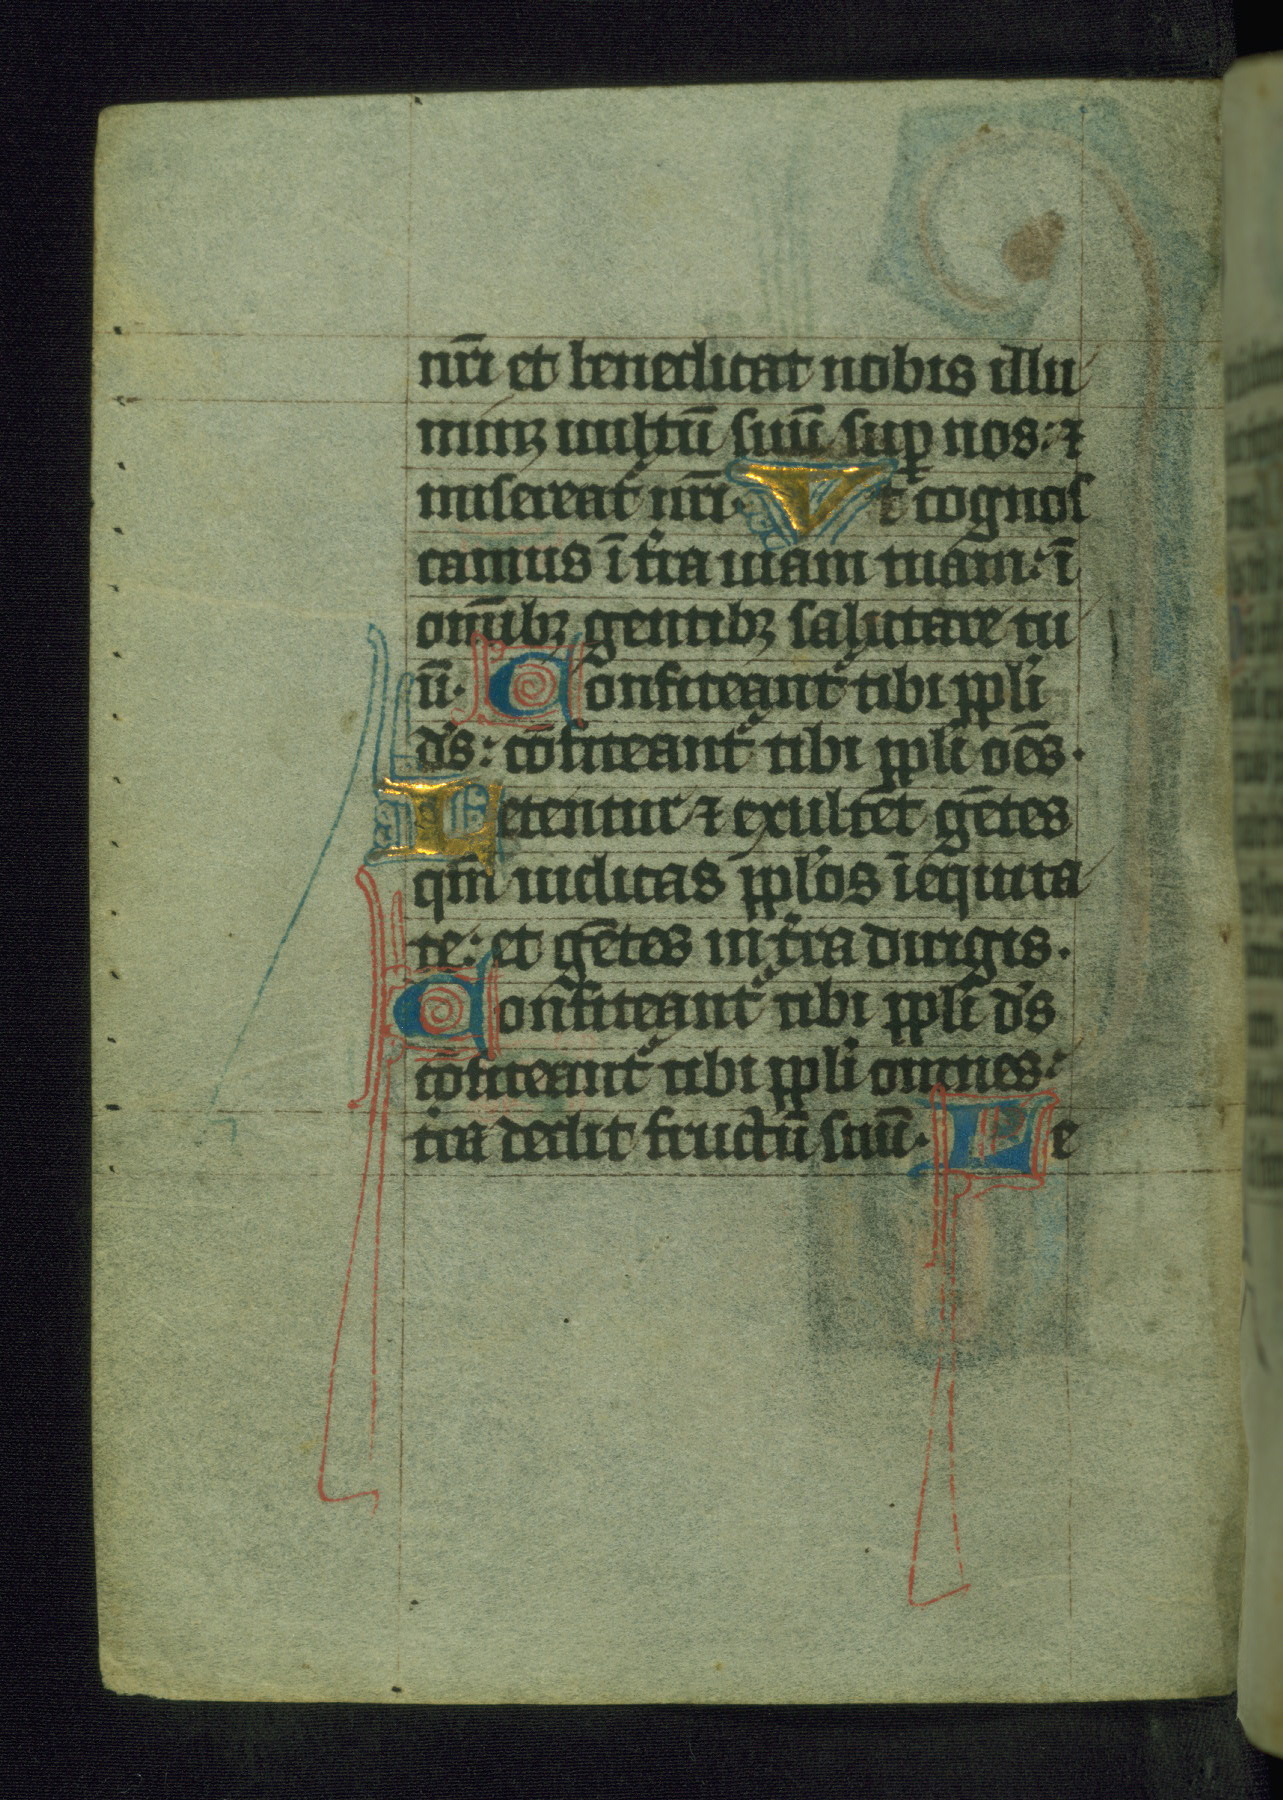 nr̄i et benedicat nobis illu
minꝫ uultū suū suꝑ nos: ⁊
misereat᷑ nr̄i. Vt cognos
camus ī t̄ra uiam tuam: ī
omībꝫ gentibꝫ salutare tu
ū. Confiteant᷑ tibi ppl̓i
d̓s: cōfiteant᷑ tibi ppl̓i oēs.
Letentur ⁊ exultēt gētes
qm̄ iudicas ppl̓os ī equita
te: et gētes in t̄ra dirigis.
Confiteant᷑ tibi ppl̓i d̓s
cōfiteant᷑ tibi ppl̓i omnes:
t̄ra dedit fructū suū. Be